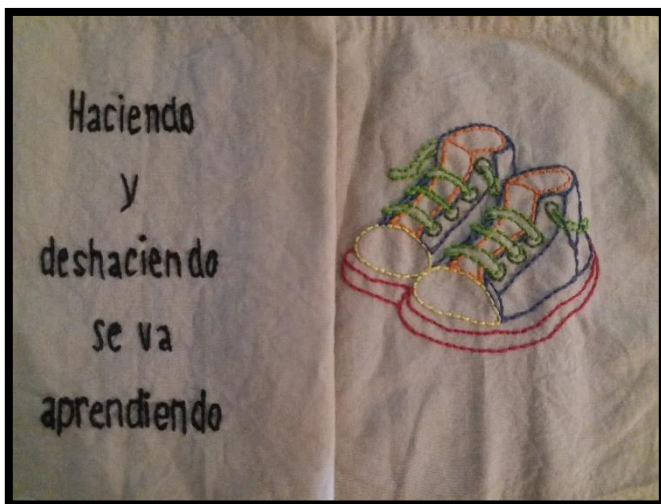 Haciendo
y
deshaciendo
se va
aprendiendo